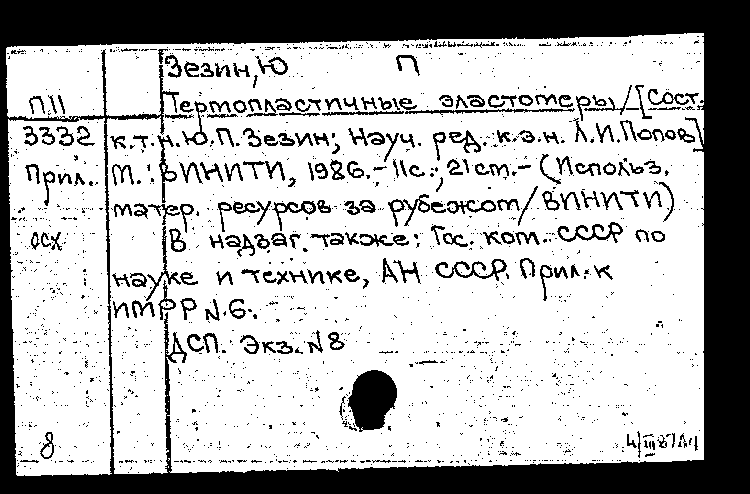 Зезин, Ю П
П11 Термопластичные эластомеры / [Сост.
3332 к.т.н. Ю.П. Зезин; Науч. ред. к.э.н. Л.И. Попов]
Прил. М.: ВИНИТИ, 1986.- 11с.; 21 cm.- (Использ.
матер. ресурсов за рубежом / ВИНИТИ)
осх В надзаг. также: Гос. ком. СССР по
науке и технике, АН СССР. Прил. к
ИМРР N.6.
ДСП. Экз. N 8
8